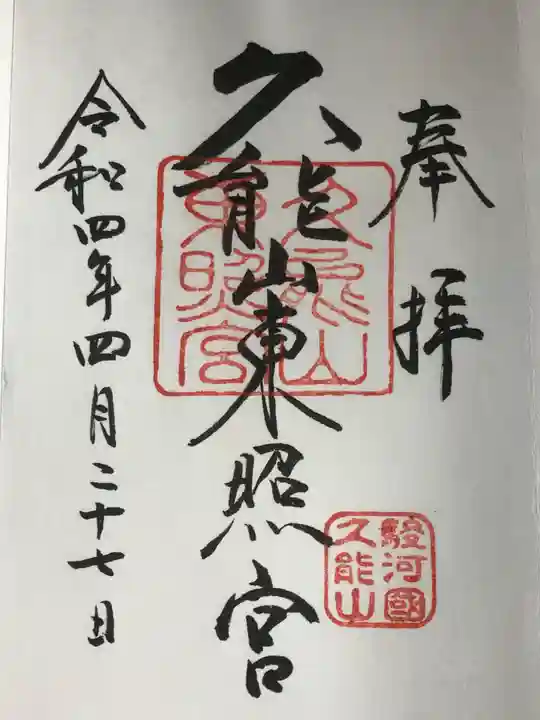 奉拝
久能山東照宮
久能山
東照宮
駿河國
久能山
令和四年四月二十七日